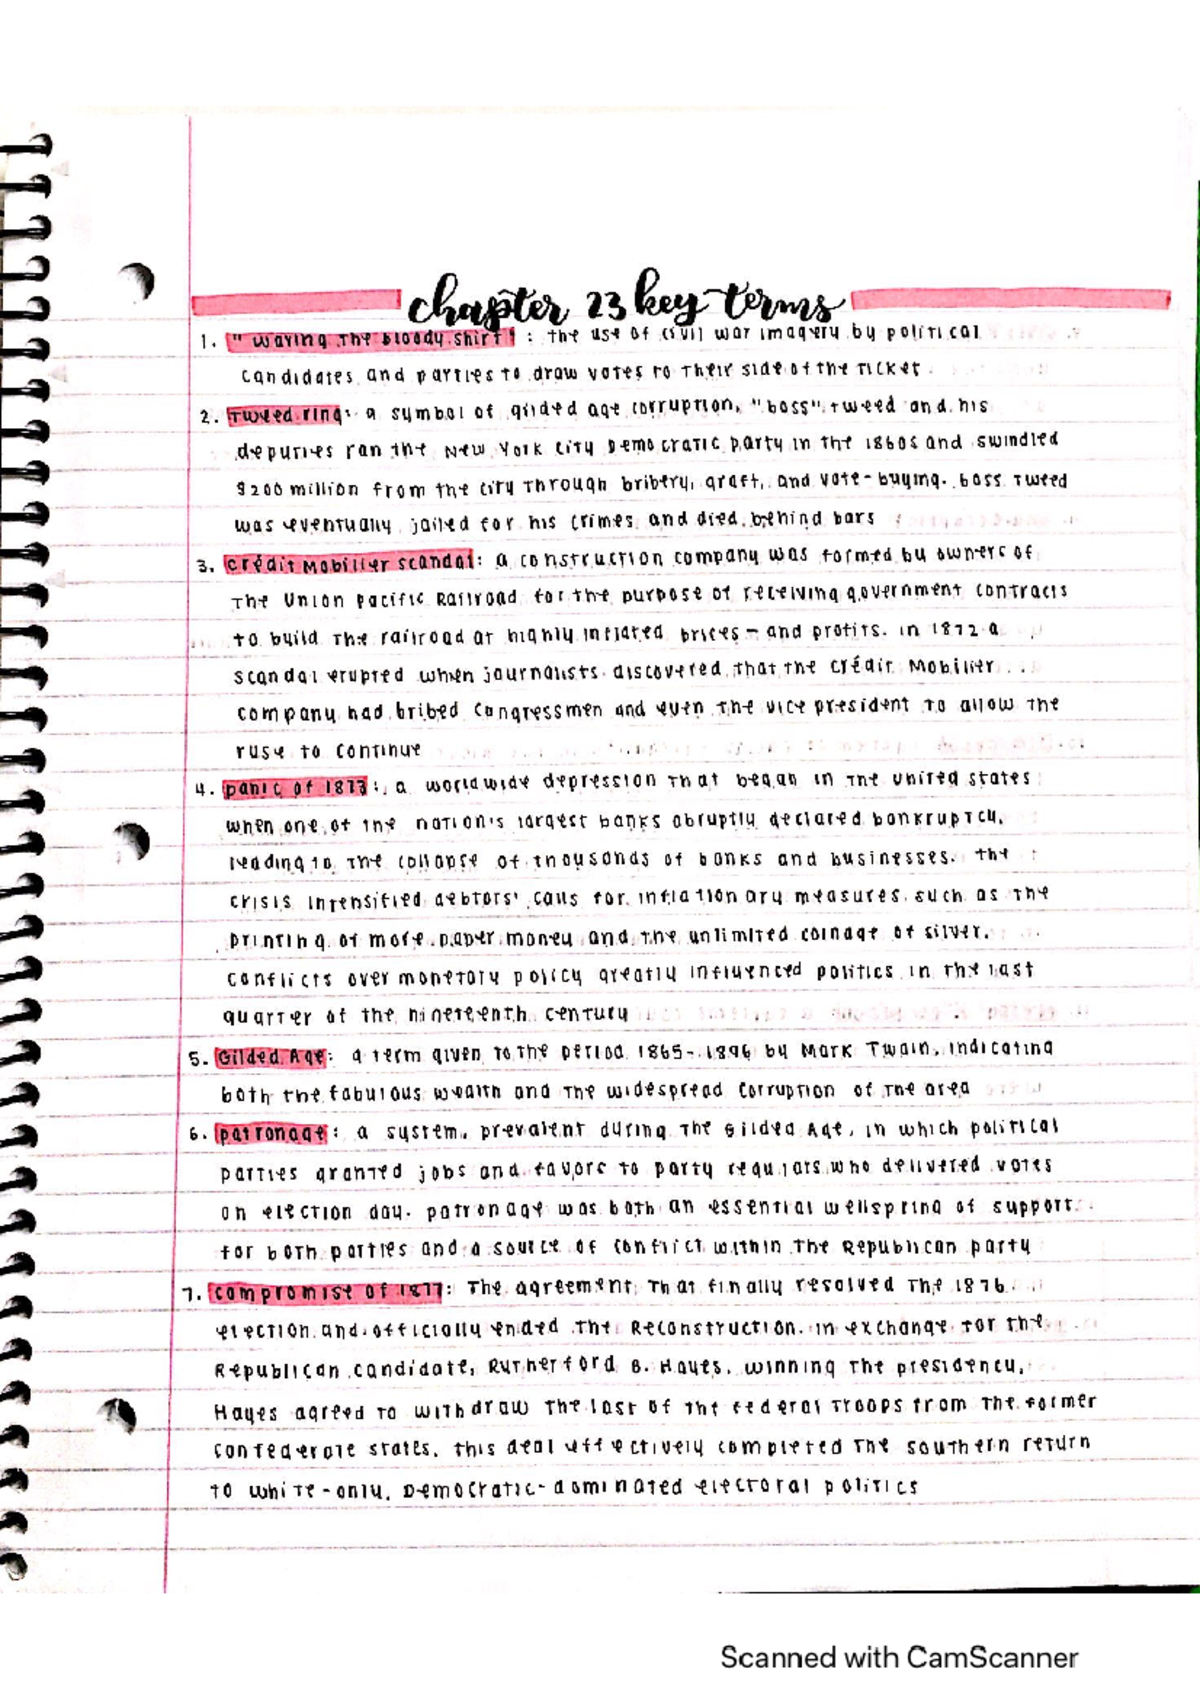 chapter 23 key terms
1. "waving the bloody shirt": the use of civil war imagery by political
candidates and parties to draw votes to their side of the ticket.
2. Tweed ring: a symbol of gilded age corruption, "boss" tweed and his
deputies ran the New York City Democratic party in the 1860s and swindled
$200 million from the city through bribery, graft, and vote-buying. boss tweed
was eventually jailed for his crimes and died behind bars
3. Crédit Mobilier scandal: a construction company was formed by owners of
the Union Pacific Railroad for the purpose of receiving government contracts
to build the railroad at highly inflated prices - and profits. in 1872 a
scandal erupted when journalists discovered that the Crédit Mobilier
company had bribed Congressmen and even the vice president to allow the
ruse to continue
4. panic of 1873: a worldwide depression that began in the united states
when one of the nation's largest banks abruptly declared bankruptcy,
leading to the collapse of thousands of banks and businesses. the
crisis intensified debtors' calls for inflationary measures such as the
printing of more paper money and the unlimited coinage of silver.
conflicts over monetary policy greatly influenced politics in the last
quarter of the nineteenth century
5. Gilded Age: a term given to the period 1865-1896 by Mark Twain, indicating
both the fabulous wealth and the widespread corruption of the area
6. patronage: a system, prevalent during the Gilded Age, in which political
parties granted jobs and favors to party regulars who delivered votes
on election day. patronage was both an essential wellspring of support
for both parties and a source of conflict within the Republican party
7. compromise of 1877: The agreement that finally resolved the 1876
election and officially ended the Reconstruction. in exchange for the
Republican candidate, Rutherford B. Hayes, winning the presidency,
Hayes agreed to withdraw the last of the federal troops from the former
confederate states. this deal effectively completed the southern return
to white-only, Democratic-dominated electoral politics
Scanned with CamScanner